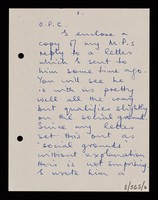 O.P.C.
I enclose a
copy of my M.P.s
reply to a letter
which I sent to
him some time ago.
You will see he
is with us pretty
well all the way
but qualifies slightly
on the social ground.
Since my letter
set this out as
'social grounds'
without explanation
this is not surprising.
I wrote him a